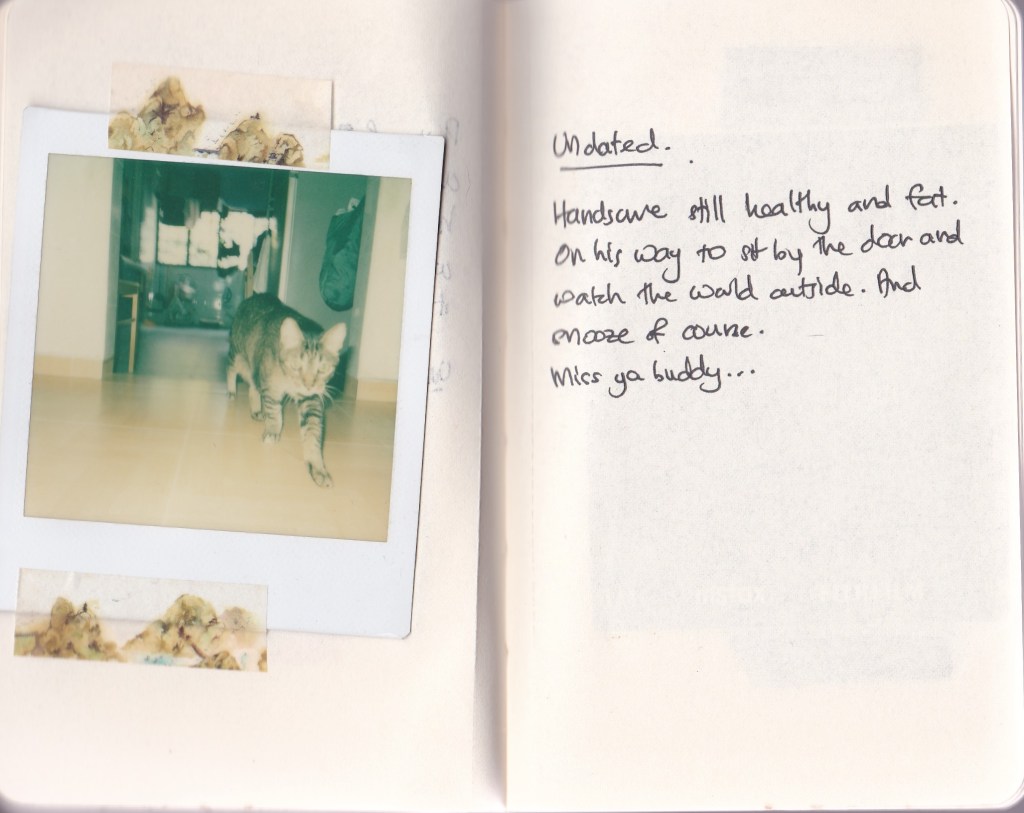 Undated.
Handsome still healthy and fat.
On his way to sit by the door and
watch the world outside. And
snooze of course.
Miss ya buddy...